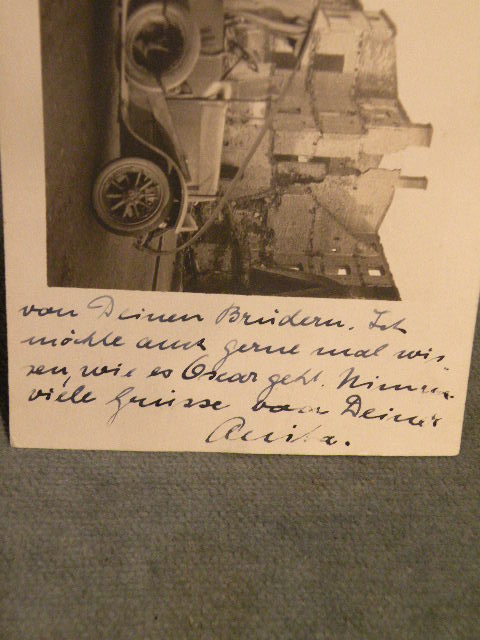 von Deinen Brüdern. Ich
möchte auch gerne mal wis-
sen, wie es Oscar geht. Nimm
viele Grüsse von Deiner
Anita.